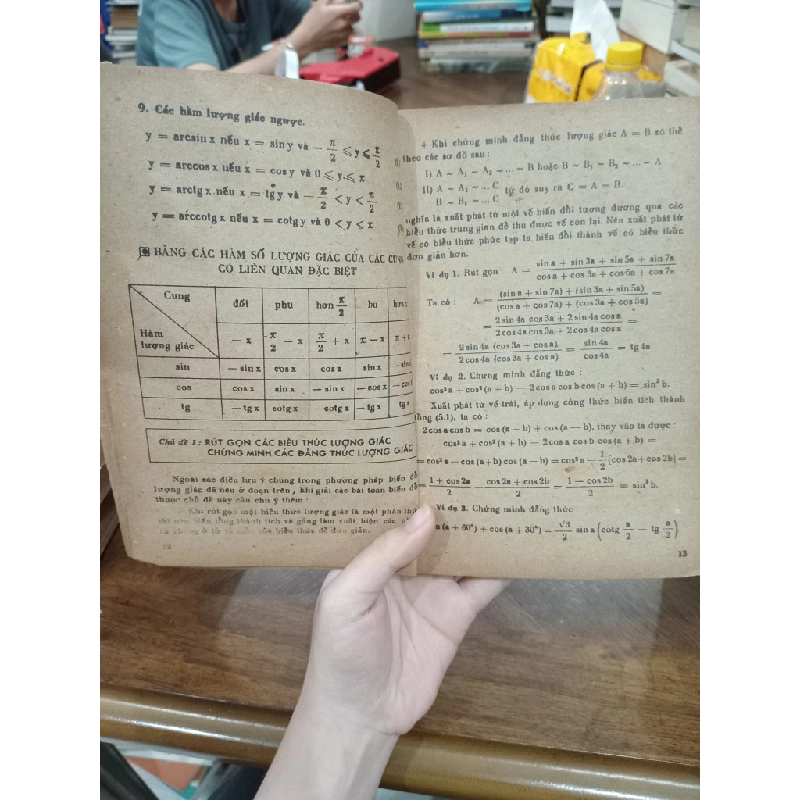 9. Các hàm lượng giác ngược.
y = arcsin x nếu x = sin y và − π/2 ⩽ y ⩽ π/2
y = arccos x nếu x = cos y và 0 ⩽ y ⩽ π
y = arctg x nếu x = tg y và − π/2 < y < π/2
y = arccotg x nếu x = cotg y và 0 < y < π
BẢNG CÁC HÀM SỐ LƯỢNG GIÁC CỦA CÁC CUNG
CÓ LIÊN QUAN ĐẶC BIỆT
Cung
Hàm lượng giác
đối phụ hơn π/2 bù
− x π/2 − x π/2 + x π − x π +
sin − sin x cos x cos x sin x
cos cos x sin x − sin x − cos x
tg − tg x cotg x cotg x − tg x tg x
Chủ đề 1: RÚT GỌN CÁC BIỂU THỨC LƯỢNG GIÁC
CHỨNG MINH CÁC ĐẲNG THỨC LƯỢNG GIÁC
Ngoài các điều lưu ý chung trong phương pháp biến
lượng giác đã nêu ở đoạn trên, khi giải các bài toán biến
thuộc chủ đề này cần chú ý thêm:
Khi rút gọn một biểu thức lượng giác là một phân
12
+ Khi chứng minh đẳng thức lượng giác A = B có thể
theo các sơ đồ sau:
I) A ~ A₁ ~ A₂ ~ ... ~ B hoặc B ~ B₁ ~ B₂ ~ ... ~ A
II) A ~ A₁ ~ ... C
B ~ B₁ ~ ... C từ đó suy ra C = A = B.
nghĩa là xuất phát từ một vế biến đổi tương đương qua các
biểu thức trung gian để thu được vế còn lại. Nên xuất phát từ
vế có biểu thức phức tạp ta biến đổi thành vế có biểu thức
đơn giản hơn.
Ví dụ 1. Rút gọn A = (sin a + sin 3a + sin 5a + sin 7a)/(cos a + cos 3a + cos 5a + cos 7a)
Ta có: A = ((sin a + sin 7a) + (sin 3a + sin 5a))/((cos a + cos 7a) + (cos 3a + cos 5a)) =
= (2 sin 4a cos 3a + 2 sin 4a cos a)/(2 cos 4a cos 3a + 2 cos 4a cos a) =
= (2 sin 4a (cos 3a + cos a))/(2 cos 4a (cos 3a + cos a)) = sin 4a/cos 4a = tg 4a
Ví dụ 2. Chứng minh đẳng thức:
cos² a + cos² (a + b) − 2 cos a cos b cos (a + b) = sin² b.
Xuất phát từ vế trái, áp dụng công thức biến tích thành
tổng (5.1), ta có:
2 cos a cos b = cos (a − b) + cos (a + b), thay vào ta được:
cos² a + cos² (a + b) − 2 cos a cos b cos (a + b) =
= cos² a − cos (a + b) cos (a − b) = cos² a − 1/2 [cos 2a + cos 2b] =
= (1 + cos 2a)/2 − (cos 2a + cos 2b)/2 = (1 − cos 2b)/2 = sin² b.
Ví dụ 3. Chứng minh đẳng thức
(a + 60°) + cos (a + 30°) = sin a (cotg a/2 − tg a/2)
13